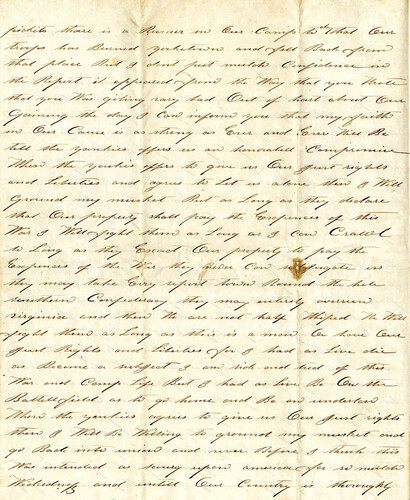 pickits theare is a Rumer in Our Camp to th What Our
troops has Burned yorketown and fell Back from
that place But I dont put mutch Confidence in
the Report it appeared from the Way that you Wrote
that you Was giting vary bad Out of heart about Our
Gaining the day I Can inform you that my faith
in Our Cause is as strong as Ever and Ever Will Be
till the yankies offers us an honorabell Compromise
When the yankies offers to give us Our Just rights
and Liberties and agrees to Let us alone then I Will
Ground my musket But as Long as they declare
that Our property shall pay the Expences of this
War I Will fight them as Long as I can Crawl
So Long as they Exact Our property to pay the
Expences of the War they never Can us
they may take Evry seport town Round the hole
southern Confedracy they may entirely overrun
virginia and then We are not half Whiped We Will
fight them as Long as theire is a man Or have Our
Just Rights and Liberties for I had as Live die
as Become a subject I am sick and tired of this
War and Camp Life But I had as Live Be On the
Battellfield as to go home and Be an
When the yankies agrees to give us Our Just rights
then I Will Be Willing to ground my musket and
go Back into union and never Before I think this
War was intended as upon america for so mutch
Wickedness and untill Our Country is thoroughly